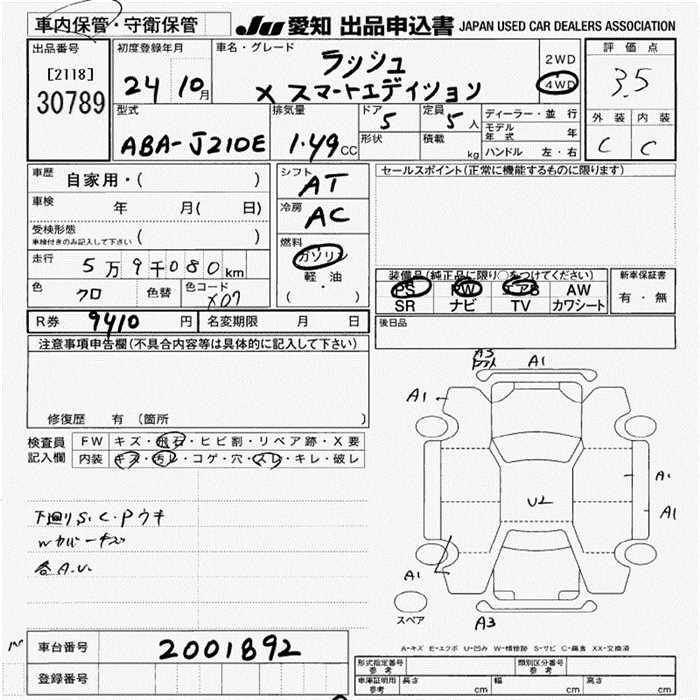 車内保管・守衛保管 JU 愛知 出品申込書 JAPAN USED CAR DEALERS ASSOCIATION
出品番号 初度登録年月 車名・グレード 評価点
[2118] 24 10月 ラッシュ 2WD 3.5
30789 X スマートエディション 4WD
型式 排気量 ドア 定員 ディーラー・並行 外装 内装
5 5人 モデル年式 年
ABA-J210E 1.49cc 形状 積載 kg ハンドル 左・右 C C
車歴 自家用・( ) シフト AT セールスポイント(正常に機能するものに限ります)
車検 年 月( 日) 冷房 AC
受検形態 ( )
車検付きのみ記入して下さい
燃料 ガソリン
走行 5万9千080km 軽油 装備品(純正品に限り○をつけてください) 新車保証書
色 クロ 色替 色コード X07 ・ PS PW エアB AW 有・無
( ) SR ナビ TV カワシート
R券 9410円 名変期限 月 日 後日品
注意事項申告欄(不具合内容等は具体的に記入して下さい)
A3 A1
A1
修復歴 有(箇所 )
検査員 FW キズ・飛石・ヒビ割・リペア跡・X要
記入欄 内装 キズ・汚レ・コゲ・穴・スレ・キレ・破レ
A1
U2
A1
下廻りS.C.Pウキ
Wカバーキズ
各A.U.
A1
スペア A3
A-キズ E-エクボ U-凹み W-補修跡 S-サビ C-腐食 XX-交換済
車台番号 2001892
型式指定番号 参考 類別区分番号 参考
登録番号 車庫証明用 参考 長さ cm 幅 cm 高さ cm